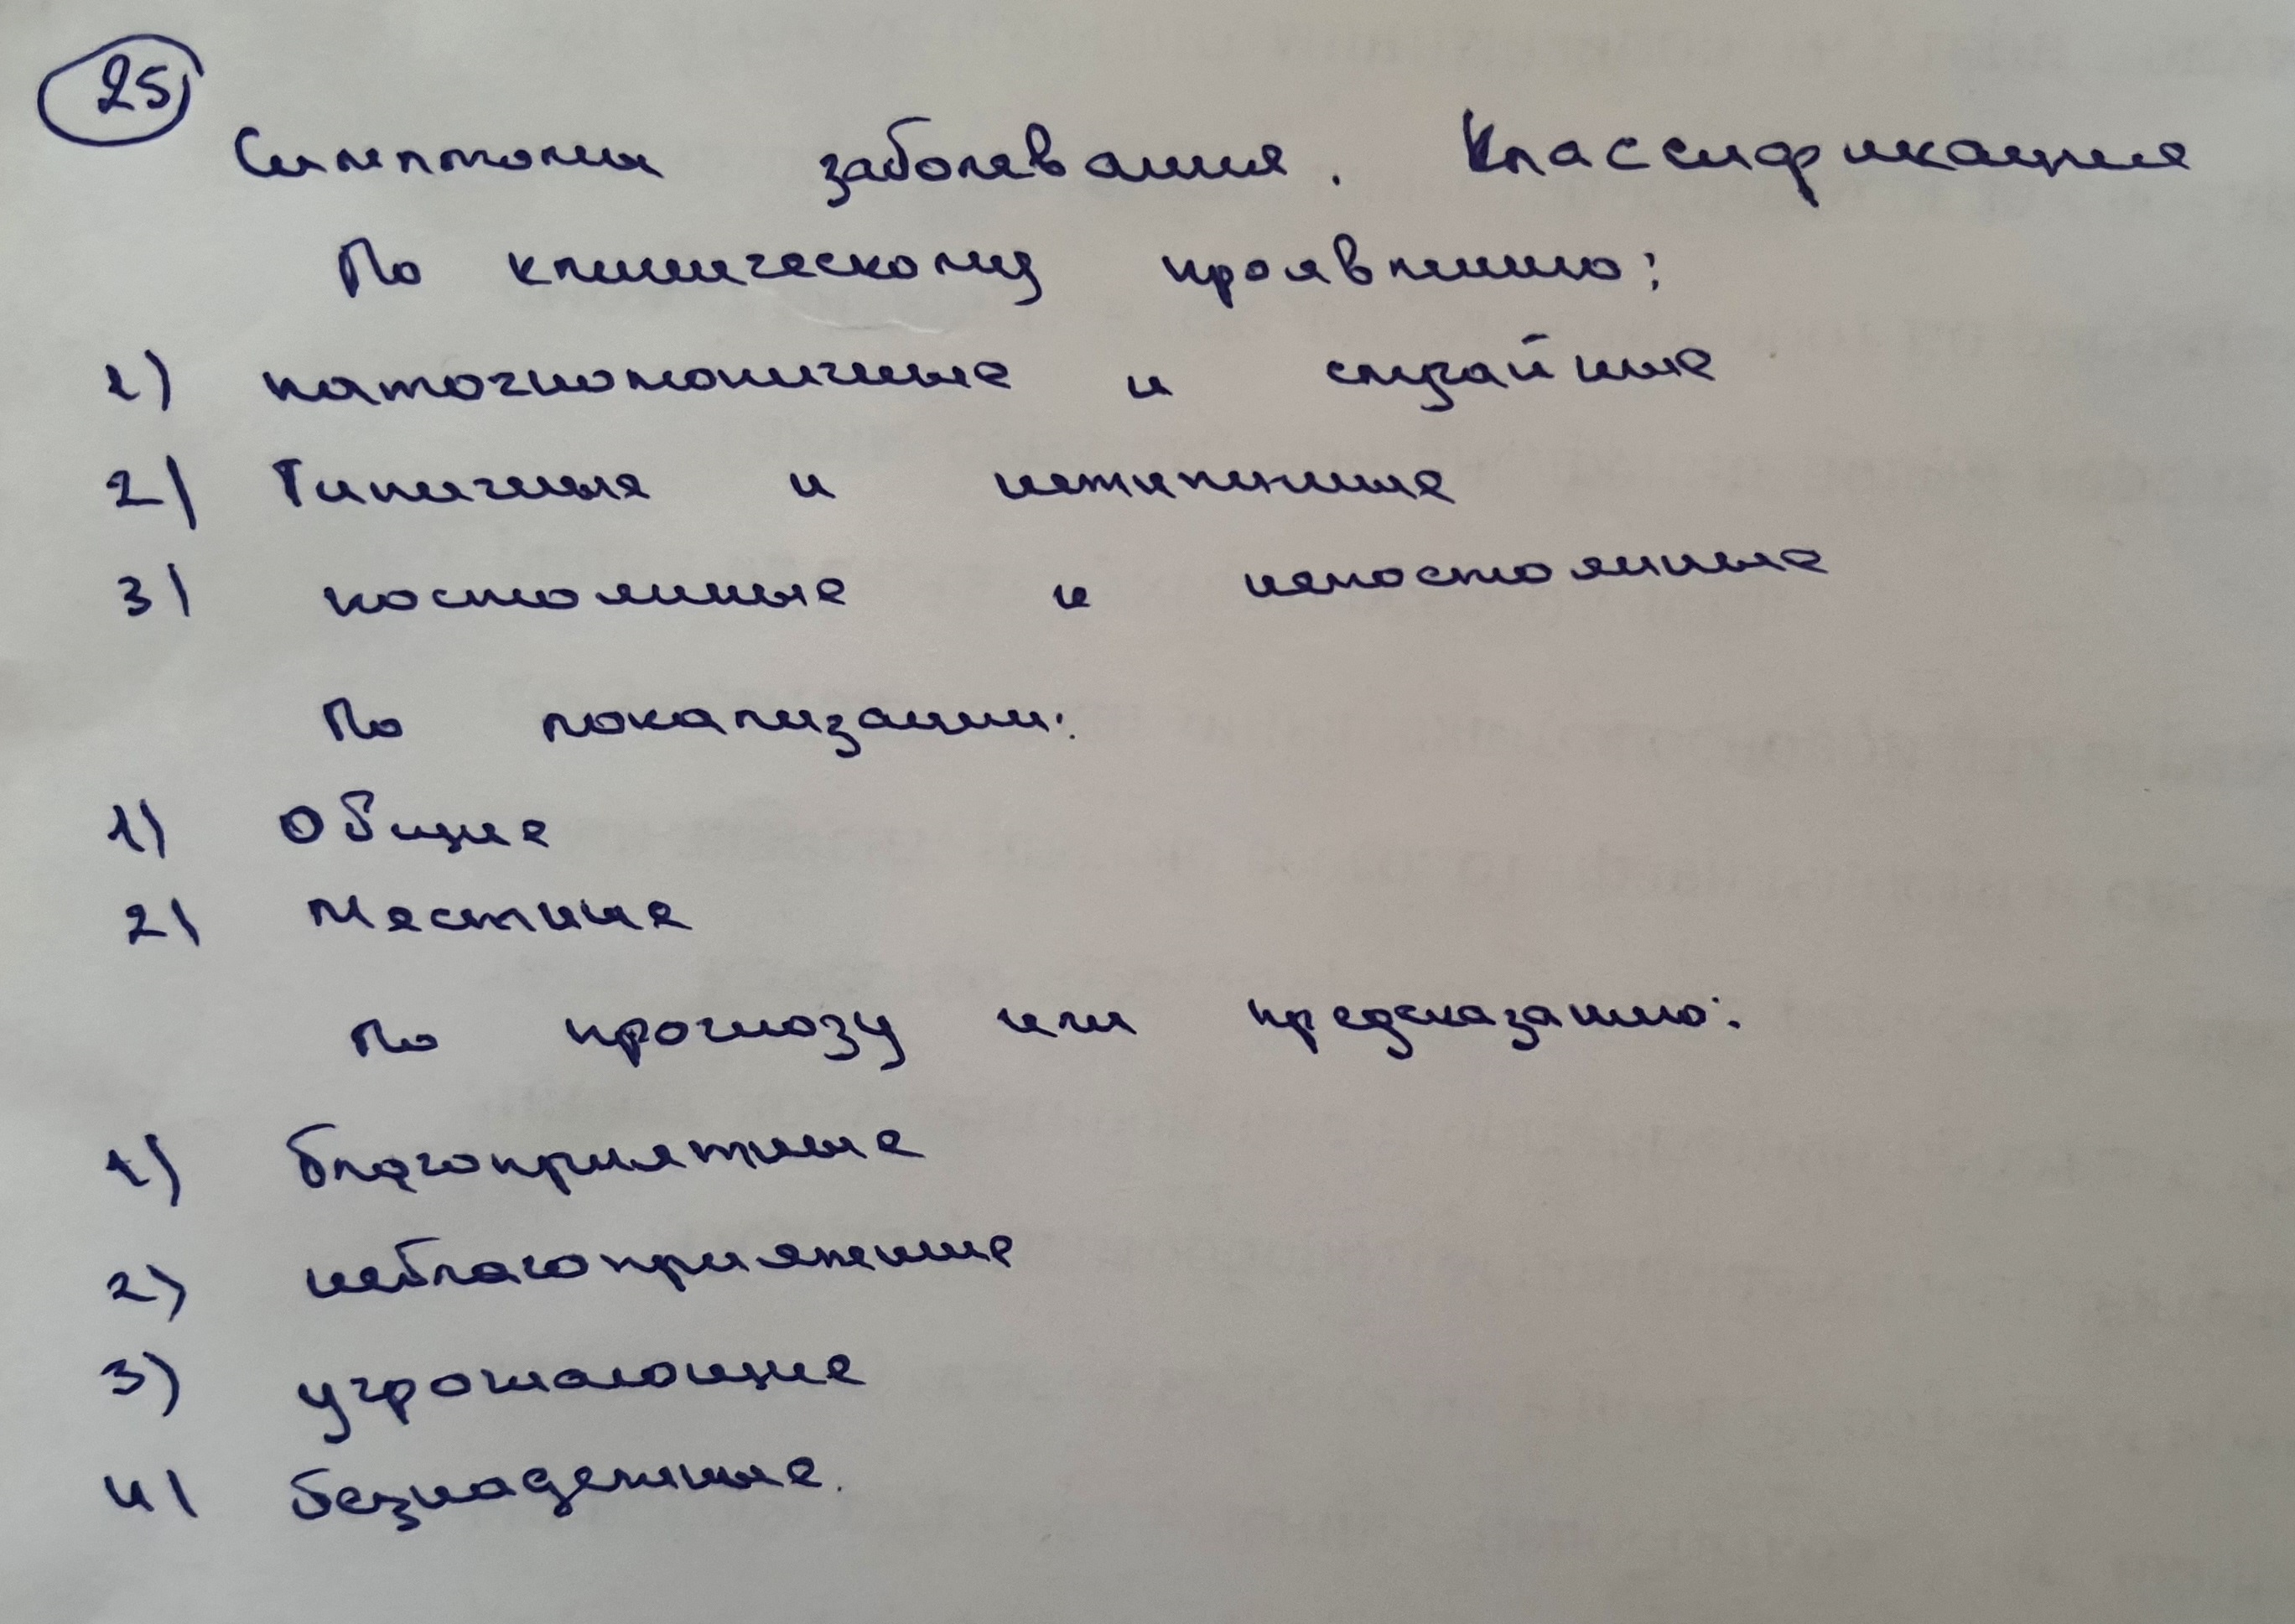 25
Симптомы заболевания. Классификация
По клиническому проявлению:
1) патогномоничные и случайные
2) Типичные и нетипичные
3) постоянные и непостоянные
По локализации:
1) Общие
2) Местные
По прогнозу или предсказанию:
1) благоприятные
2) неблагоприятные
3) угрожающие
4) безнадежные.